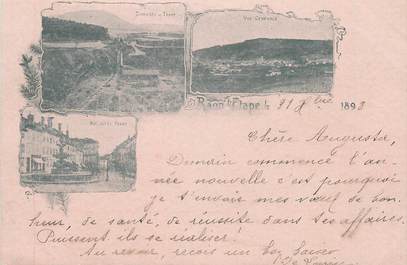 Vue Générale
Raon l'Étape, le 31 Xbre 1898
Chère Augusta,
Demain commence l'an-
née nouvelle c'est pourquoi
je t'envoie mes vœux de bon
heur, de santé, de réussite dans tes affaires.
Puissent ils se réaliser !
Au revoir, reçois un bon baiser